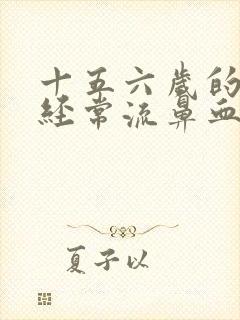 十五六歲的
經常流鼻血
夏子以